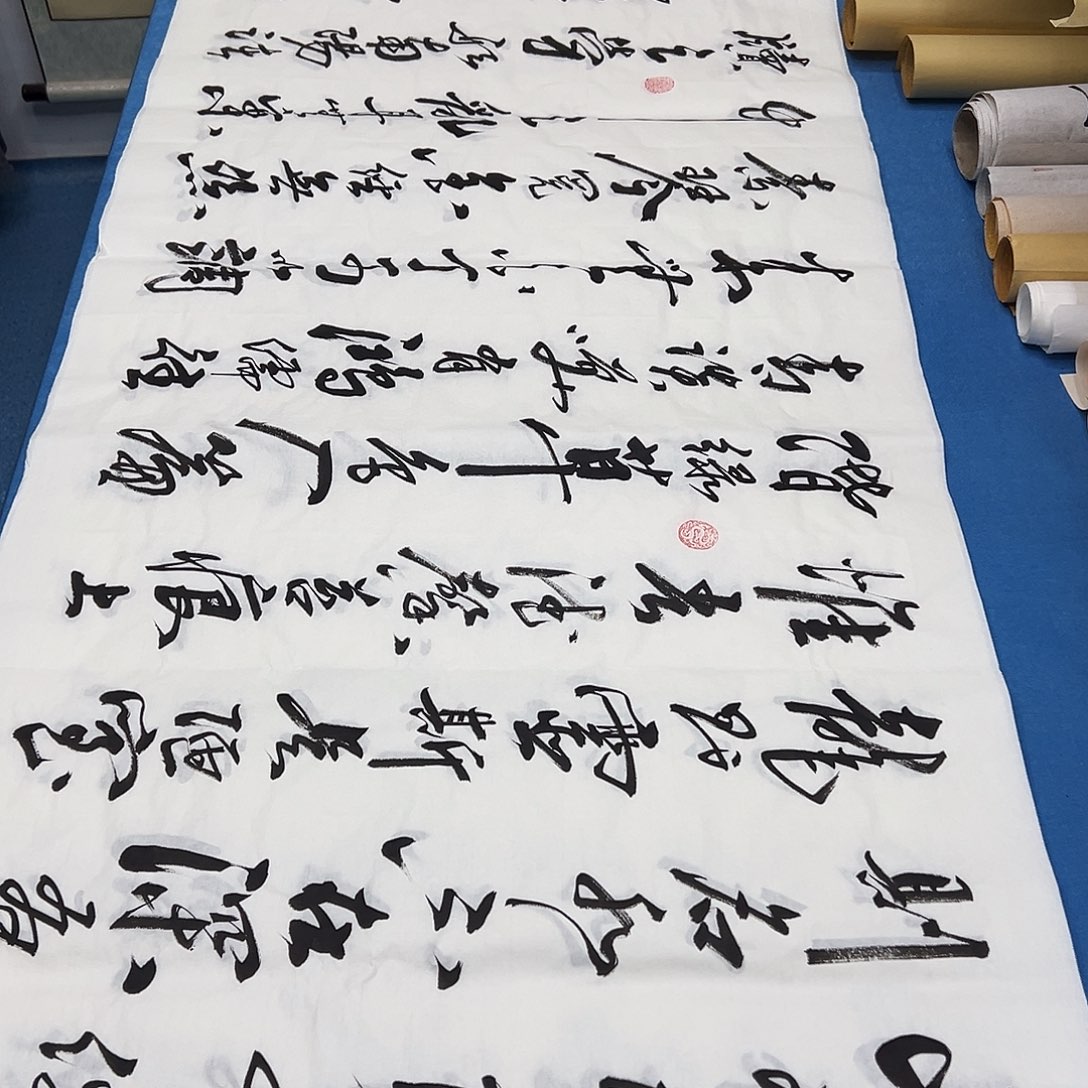 則名水不在深有
龍則靈斯是陋室
惟吾德馨苔痕上
階綠草色入簾
青談笑有鴻儒往
來無白丁可以調
素琴閱金經無絲
竹之亂耳無案
牘之勞形南陽諸